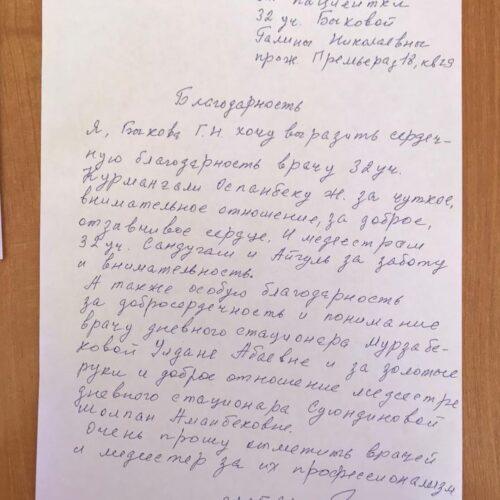 от пациентки
32 уч. Быковой
Галины Николаевны
прож Премьера 18, кв 29
Благодарность
Я, Быкова Г.Н. хочу выразить сердеч-
ную благодарность врачу 32 уч.
Курмангали Оспанбеку Ж. за чуткое,
внимательное отношение, за доброе,
отзывчивое сердце. И медсестрам
32 уч. Сандугаш и Айгуль за заботу
и внимательность.
А также особую благодарность
за добросердечность и понимание
врачу дневного стационара Мурзабе-
ковой Улдане Абаевне и за золотые
руки и доброе отношение медсестре
дневного стационара Сдюндиновой
Шолпан Аманбековне.
Очень прошу отметить врачей
и медсестер за их профессионализм